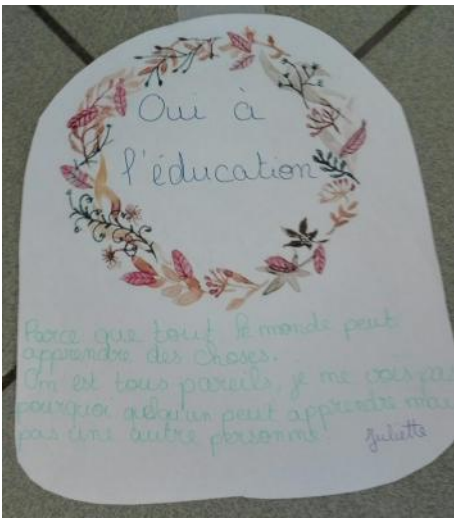 Oui à
l'éducation
Parce que tout le monde peut
apprendre des choses.
On est tous pareils, je me vois pas
pourquoi quelqu'un peut apprendre mais
pas une autre personne.
Juliette